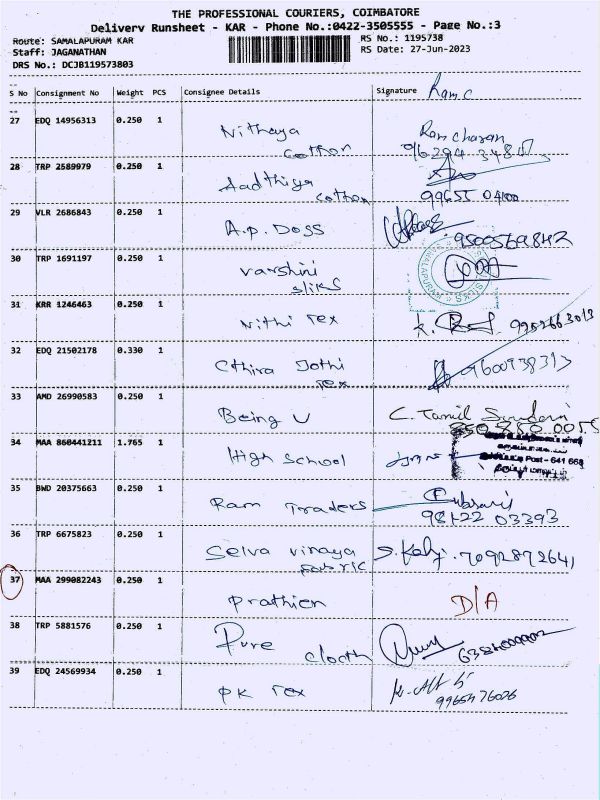 THE PROFESSIONAL COURIERS, COIMBATORE
Delivery Runsheet - KAR - Phone No.:0422-3505555 - Page No.:3
Route: SAMALAPURAM KAR RS No.: 1195738
Staff: JAGANATHAN RS Date: 27-Jun-2023
DRS No.: DCJB119573803
S No Consignment No Weight PCS Consignee Details Signature Ram.C
27 EDQ 14956313 0.250 1 Nithaya Ramcharan
cotton
28 TRP 2589979 0.250 1 Aadthiya
cotton
29 VLR 2686843 0.250 1 A.P. Doss 9500569842
30 TRP 1691197 0.250 1 varshini
sliks
31 KRR 1246463 0.250 1 Nithi Tex
32 EDQ 21502178 0.330 1 Jothi 9600938313
Tex
33 AMD 26990583 0.250 1 Being U C. Tamil
34 MAA 860441211 1.765 1 High School
Post - 641 663
35 BWD 20375663 0.250 1 Ram Traders
98422 03393
36 TRP 6675823 0.250 1 Selva vinaya 7092872641
Fabric
37 MAA 299082243 0.250 1 Prathien D/A
38 TRP 5881576 0.250 1 Pure
cloth
39 EDQ 24569934 0.250 1 PK Tex
9965476026